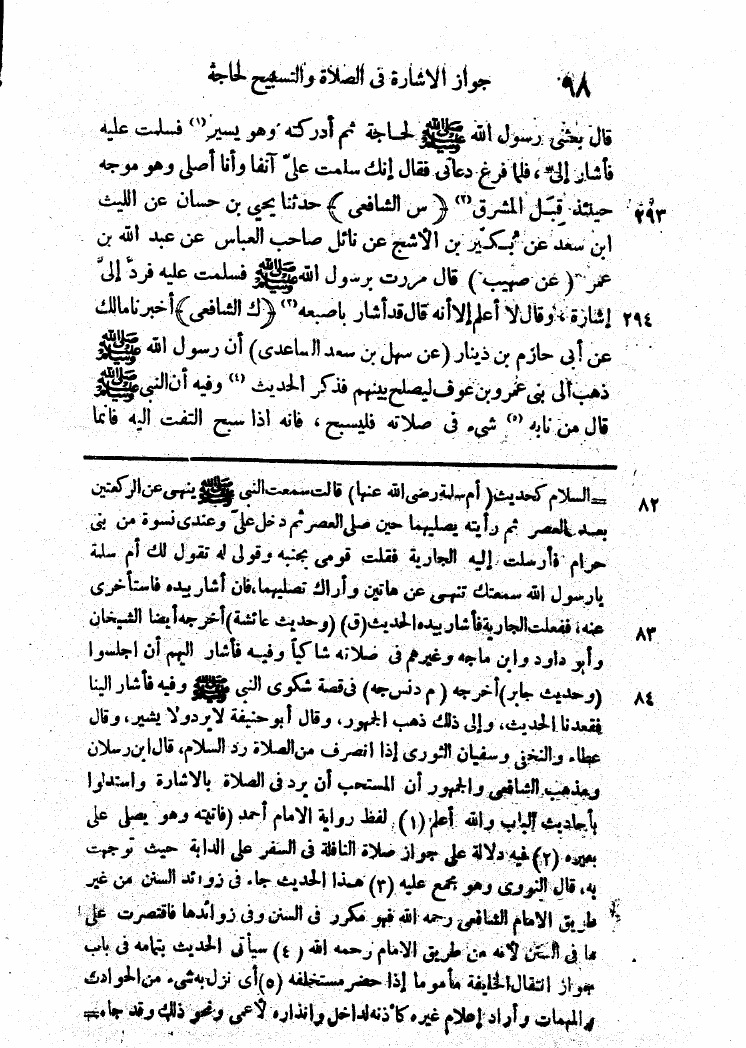 ٩٨ جواز الاشارة فى الصلاة والتسبيح لحاجة
قال بعثنى رسول الله ﷺ لحاجة ثم أدركته وهو يسير (١) فسلمت عليه
فأشار إلىّ، فلما فرغ دعانى فقال إنك سلمت علىّ آنفا وأنا أصلى وهو موجه
٢٩٣ حينئذ قِبَل المشرق (٢) ﴿ س الشافعى ﴾ حدثنا يحيى بن حسان عن الليث
ابن سعد عن بُكَيْر بن الأشج عن نائل صاحب العباس عن عبد الله بن
عمر (عن صهيب) قال مررت برسول الله ﷺ فسلمت عليه فردَّ إلىَّ
٢٩٤ إشارة، وقال لا أعلم إلا أنه قال قد أشار باصبعه (٣) ﴿ك الشافعى﴾ أخبرنا مالك
عن أبى حازم بن دينار (عن سهل بن سعد الساعدى) أن رسول الله ﷺ
ذهب إلى بنى عمرو بن عوف ليصلح بينهم فذكر الحديث (٤) وفيه أن النبى ﷺ
قال من نابه (٥) شىء فى صلاته فليسبح، فانه اذا سبح التفت اليه فانما
٨٢ = السلام كحديث (أم سلمة رضى الله عنها) قالت سمعت النبى ﷺ ينهى عن الركعتين
بعد العصر ثم رأيته يصليهما حين صلى العصر ثم دخل علىّ وعندى نسوة من بنى
حرام فأرسلت إليه الجارية فقلت قومى بجنبه وقولى له تقول لك أم سلمة
يا رسول الله سمعتك تنهى عن هاتين وأراك تصليهما، فان أشار بيده فاستأخرى
٨٣ عنه، ففعلت الجارية فأشار بيده الحديث (ق) (وحديث عائشة) أخرجه أيضا الشيخان
وأبو داود وابن ماجه وغيرهم فى صلاته شاكيا وفيه فأشار اليهم أن اجلسوا
٨٤ (وحديث جابر) أخرجه (م د نس جه) فى قصة شكوى النبى ﷺ وفيه فأشار الينا
فقعدنا الحديث، وإلى ذلك ذهب الجمهور، وقال أبو حنيفة لا يرد ولا يشير، وقال
عطاء والنخعى وسفيان الثورى إذا انصرف من الصلاة رد السلام، قال ابن رسلان
ومذهب الشافعى والجمهور أن المستحب أن يرد فى الصلاة بالاشارة واستدلوا
بأحاديث الباب والله أعلم (١) لفظ رواية الامام أحمد (فاتيته وهو يصلى على
بعيره (٢) فيه دلالة على جواز صلاة النافلة فى السفر على الدابة حيث توجهت
به، قال النووى وهو مجمع عليه (٣) هذا الحديث جاء فى زوائد السنن من غير
طريق الامام الشافعى رحمه الله فهو مكرر فى السنن وفى زوائدها فاقتصرت على
ما فى السنن لأنه من طريق الامام رحمه الله (٤) سيأتى الحديث بتمامه فى باب
جواز انتقال الخليفة مأموما إذا حضر مستخلفه (٥) أى نزل به شىء من الحوادث
والمهمات وأراد إعلام غيره كأذنه لداخل وانذاره لأعمى ونحو ذلك وقد جاء =